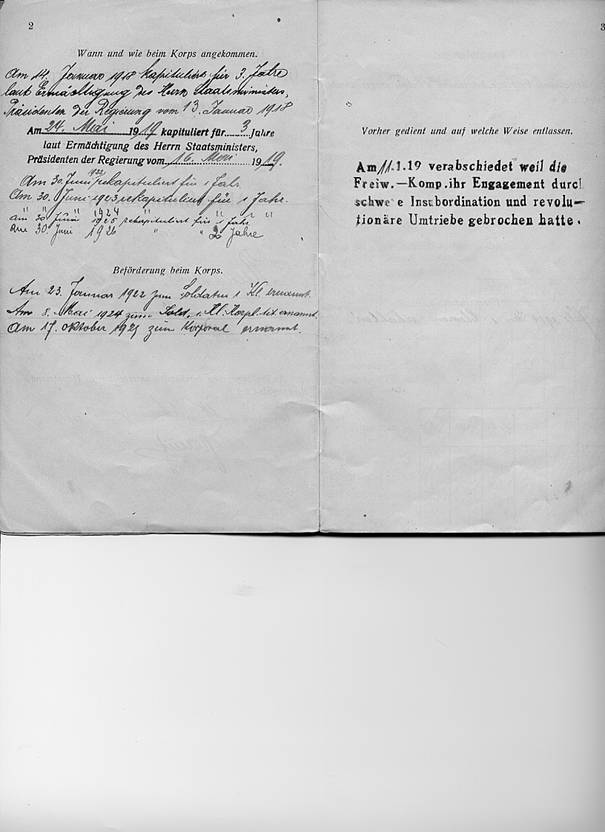 2
Wann und wie beim Korps angekommen.
Am 14. Januar 1918 kapituliert für 3 Jahre
laut Ermächtigung des Herrn Staatsminister,
Präsidenten der Regierung vom 13. Januar 1918
Am 24. Mai 1919 kapituliert für 3 Jahre
laut Ermächtigung des Herrn Staatsministers,
Präsidenten der Regierung vom 16. Mai 1919.
Am 30. Juni 1922 rekapituliert für 1 Jahr
Am 30. Juni 1923 rekapituliert für 1 Jahr.
am 30 Juni 1924 1925 rekapituliert für 1 Jahr
Am 30 Juni 1926 " " 2 Jahre
Beförderung beim Korps.
Am 23. Januar 1922 zum Soldaten 1 Kl. ernannt.
Am 8. Mai 1924 zum Sold. 1. Kl. Korpl. tit. ernannt.
Am 17. Oktober 1925 zum Korporal ernannt.
3
Vorher gedient und auf welche Weise entlassen.
Am 11.1.19 verabschiedet weil die
Freiw.-Komp.ihr Engagement durch
schwe e Insubordination und revolu-
tionäre Umtriebe gebrochen hatte.